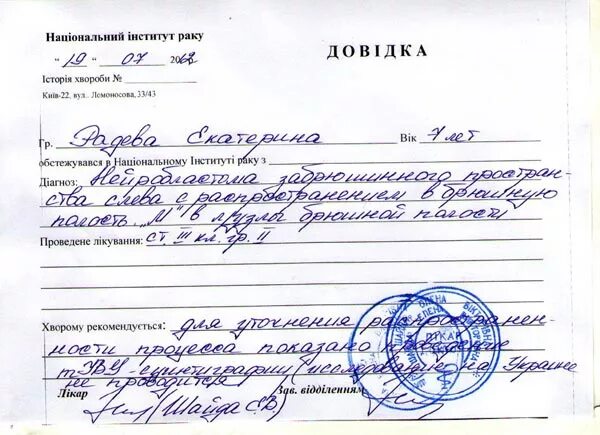 Національний інститут раку
"19" 07 2012
ДОВІДКА
Історія хвороби №
Київ-22, вул.. Ломоносова, 33/43
Гр. Радева Екатерина Вік 7 лет
обстежувався в Національному Інституті раку з
Діагноз: Нейробластома забрюшинного простран-
ства слева с распространением в брюшную
полость. "М" в л/узлы брюшной полости
Проведене лікування: ст. III кл. гр. II
Хворому рекомендується: для уточнения распространен-
ности процесса показано проведение
сцинтиграфии (исследование на Украине
не проводится
Лікар Зав. відділенням
(Шайда Е.В.)